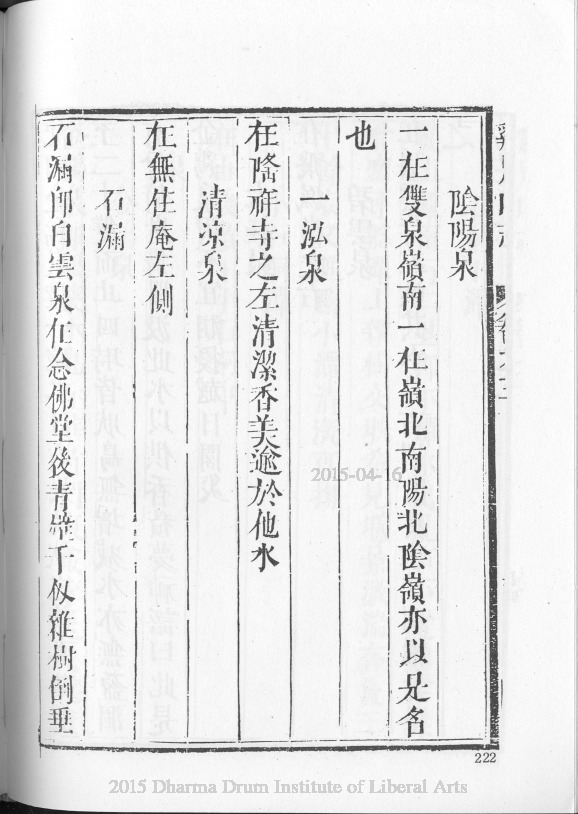 陰陽泉
一在雙泉嶺南一在嶺北南陽北陰嶺亦以是名
也
一泓泉
在隆祥寺之左清潔香美逾於他水
清凉泉
在無住庵左側
石漏
石漏卽白雲泉在念佛堂後青壁千仭雜樹倒垂
2015-04-16
222
2015 Dharma Drum Institute of Liberal Arts